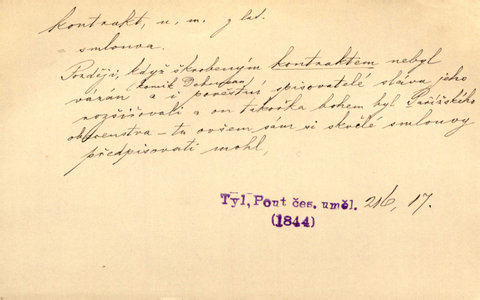 kontrakt, u, m. z lat.
smlouva.
Později, když škobeným kontraktem nebyl
vázán a i pověstní spisovatelé slávu jeho
(komik Debureau)
rozšiřovali a on takořka bohem byl Pařížského
obecenstva – tu ovšem sám si skvělé smlouvy
předpisovati mohl,
Tyl, Pout čes. uměl. 216, 17.
(1844)